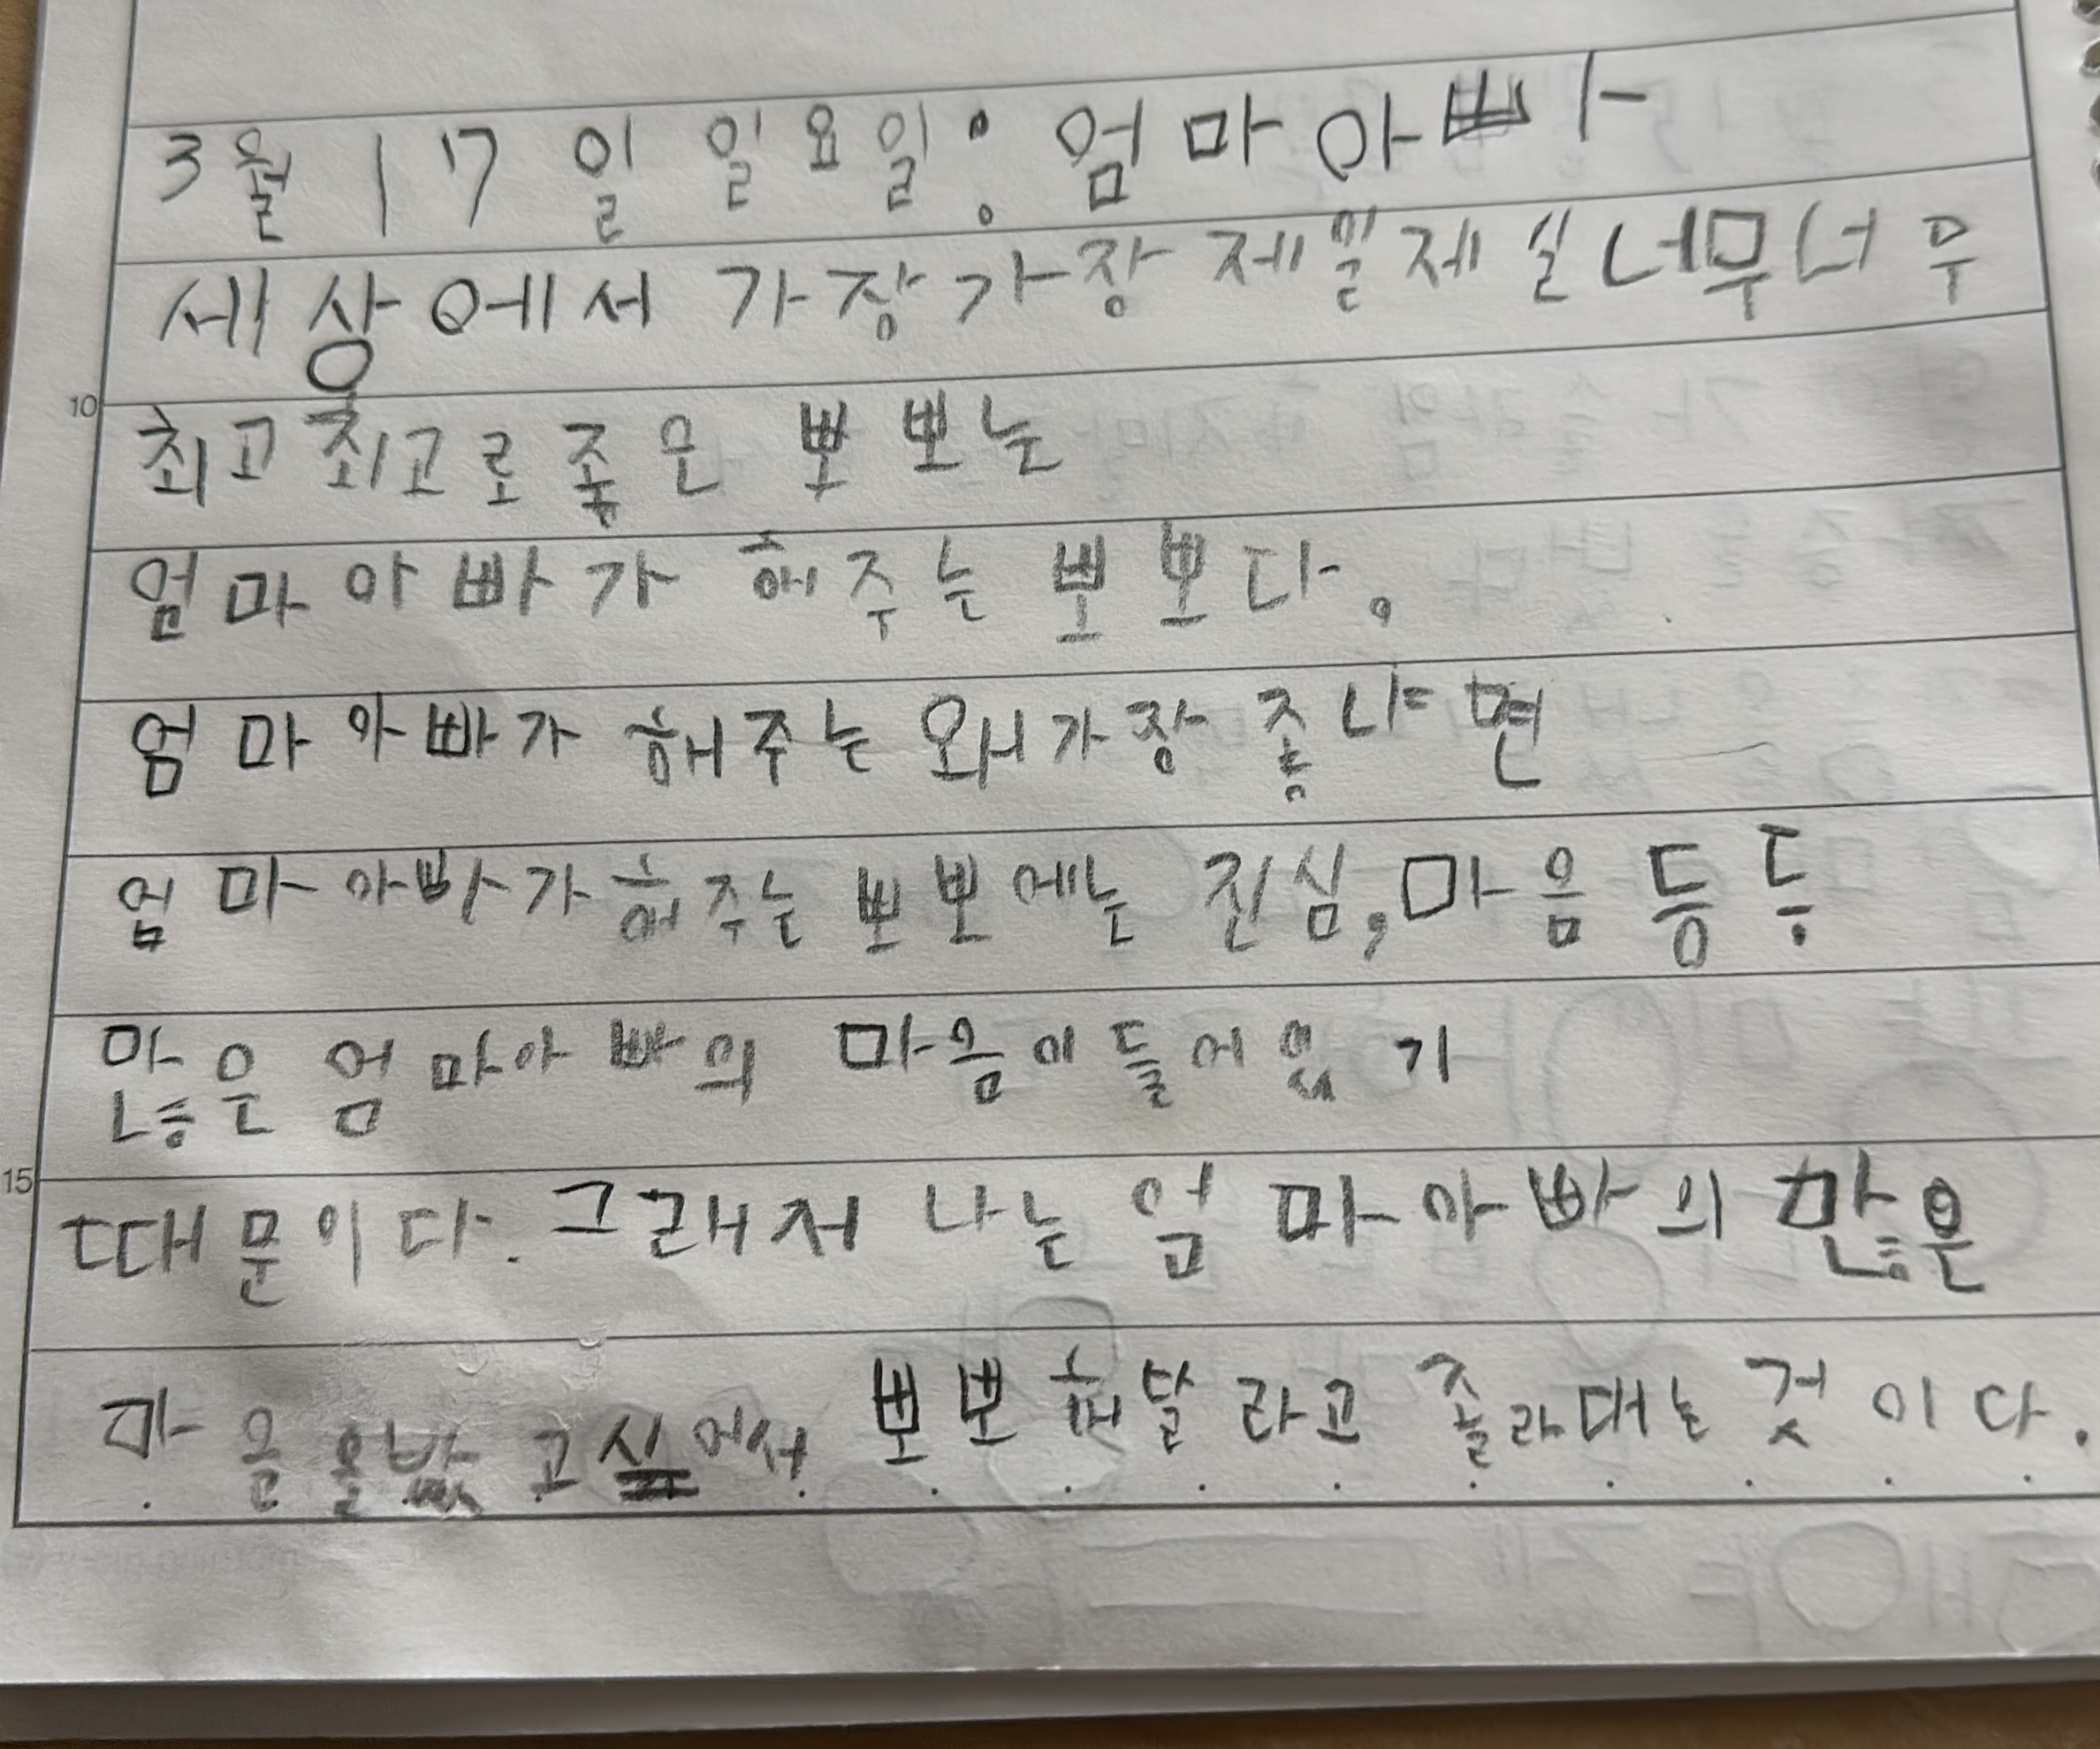 3월 17일 일요일: 엄마아빠
세상에서 가장가장 제일제실너무너무
최고최고로좋은 뽀뽀는
엄마아빠가 해주는 뽀뽀다.
엄마아빠가 해주는 왜가장 좋냐면
엄마아빠가해주는 뽀뽀에는 진심,마음등등
많은엄마아빠의 마음이들어있기
때문이다. 그래저 나는 엄마아빠의 많은
마음을 고싶에서 뽀뽀해달라고 졸라대는것이다.
10
15